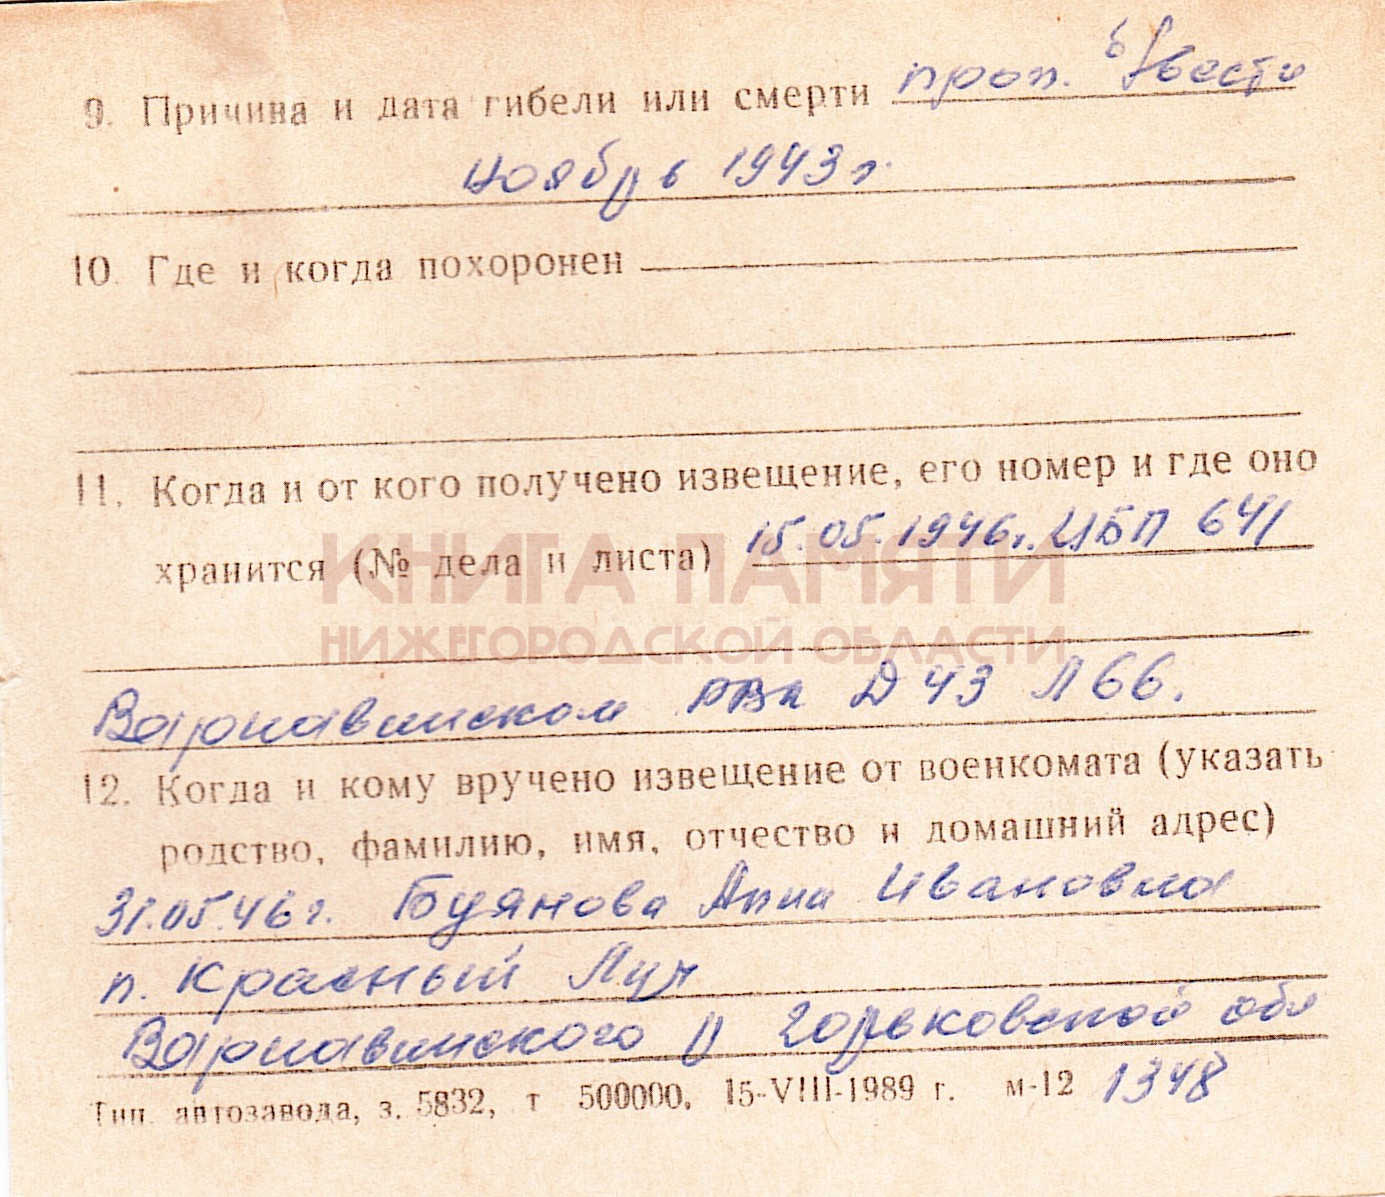 9. Причина и дата гибели или смерти проп. б/вести
ноябрь 1943 г.
10. Где и когда похоронен
11. Когда и от кого получено извещение, его номер и где оно
хранится (№ дела и листа) 15.05.1946г. ЦБП 641
КНИГА ПАМЯТИ
НИЖЕГОРОДСКОЙ ОБЛАСТИ
Варнавинском РВК Д 43 Л 66.
12. Когда и кому вручено извещение от военкомата (указать
родство, фамилию, имя, отчество и домашний адрес)
31.05.46 г. Буянова Анна Ивановна
п. Красный Луч
Варнавинского р Горьковской обл
Тип. автозавода, з. 5832, т 500000, 15-VIII-1989 г. м-12 1348